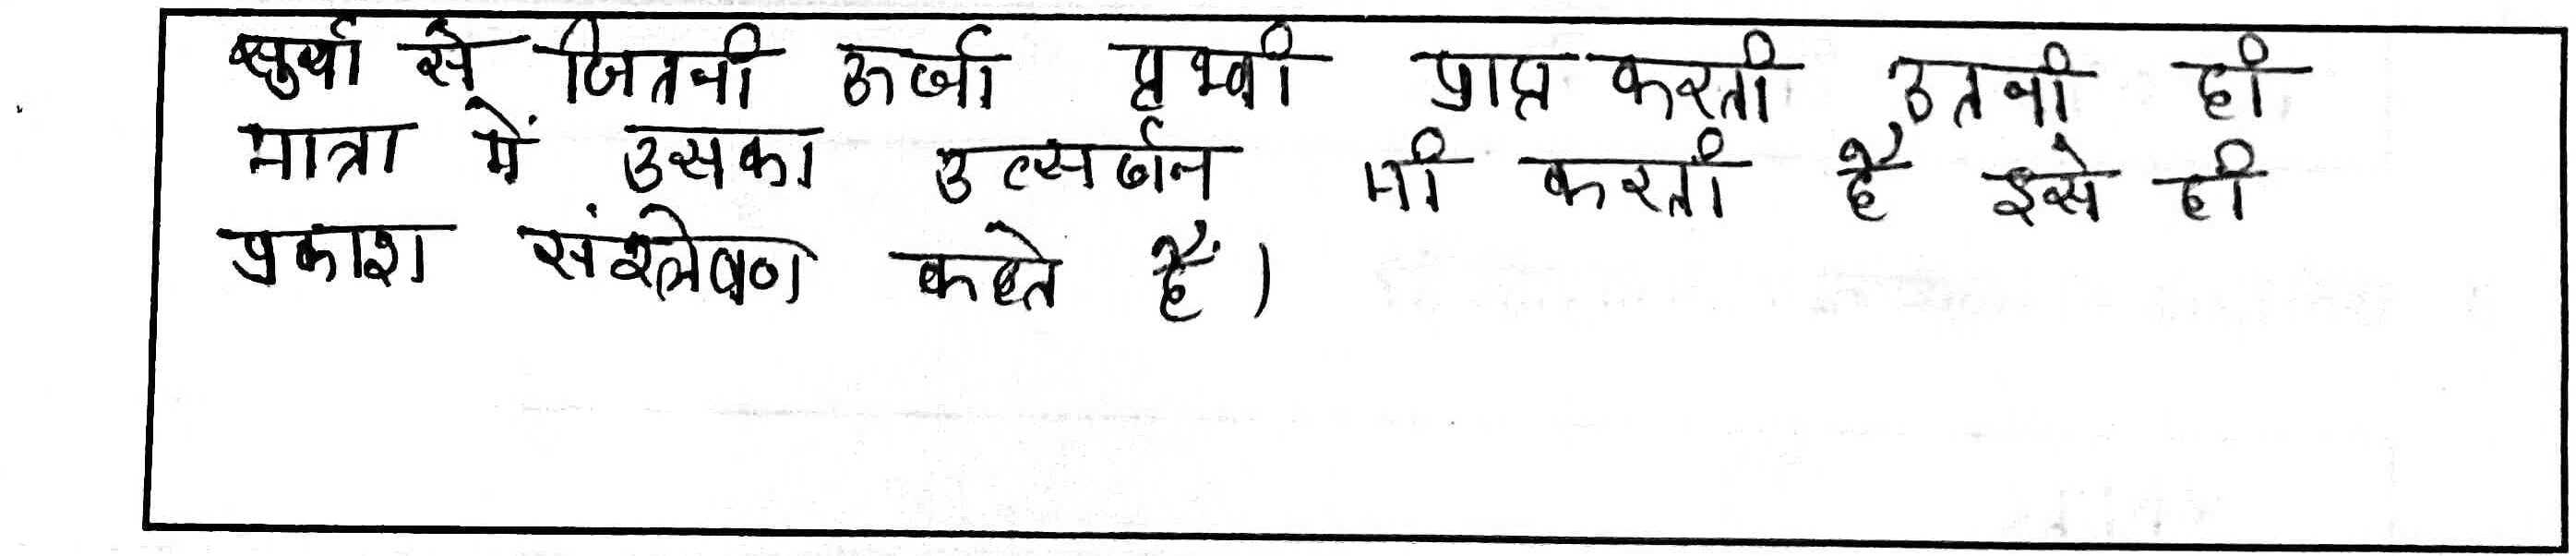 सुर्या से जितनी ऊर्जा पृथ्वी प्राप्त करती उतनी ही
मात्रा में उसका उत्सर्जन भी करती है इसे ही
प्रकाश संश्लेषण कहते हैं।